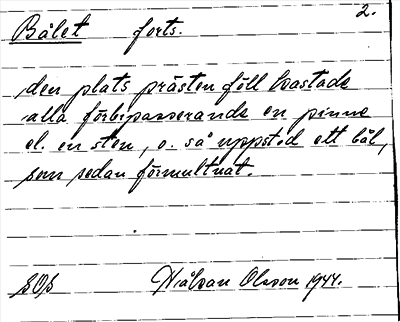 2.
Bålet forts.
den plats prästen föll kastade
alla förbipasserande en pinne
el. en sten, o. så uppstod ett bål,
som sedan förmultnat.
Håkan Olsson 1944.